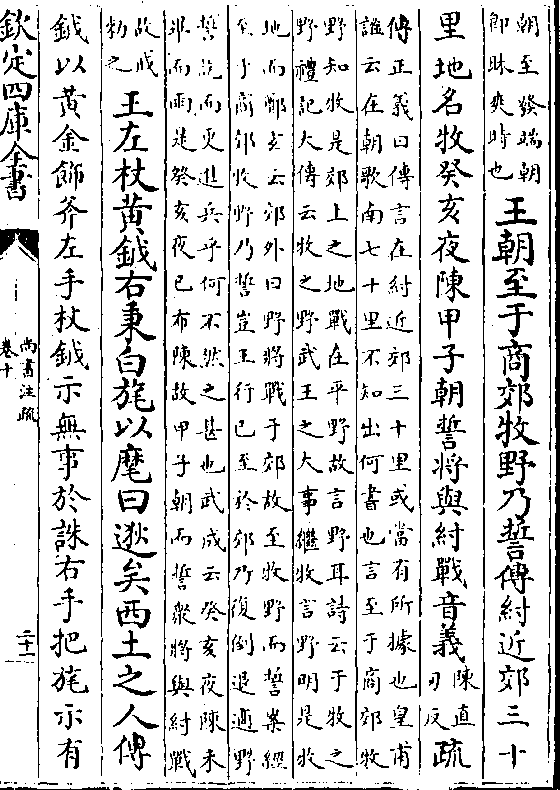 朝至發端朝
即昧爽時也
王朝至于商郊牧野乃誓傳紂近郊三十
里地名牧癸亥夜陳甲子朝誓將與紂戰音義
陳直
刃反
疏
傳正義曰傳言在紂近郊三十里或當有所據也皇甫
謐云在朝歌南七十里不知出何書也言至于商郊牧
野知牧是郊上之地戰在平野故言野耳詩云于牧之
野禮記大傳云牧之野武王之大事繼牧言野明是牧
地而鄭玄云郊外曰野將戰于郊故至牧野而誓案經
至于商郊牧野乃誓豈王行已至於郊乃復倒退適野
誓訖而更進兵乎何不然之甚也武成云癸亥夜陳未
畢而雨是癸亥夜已布陳故甲子朝而誓衆將與紂戰
故戒
勑之
王左杖黄鉞右秉白旄以麾曰逖矣西土之人傳
鉞以黄金飾斧左手杖鉞示無事於誅右手把旄示有
欽定四庫全書
尚書注疏
卷十
二十一